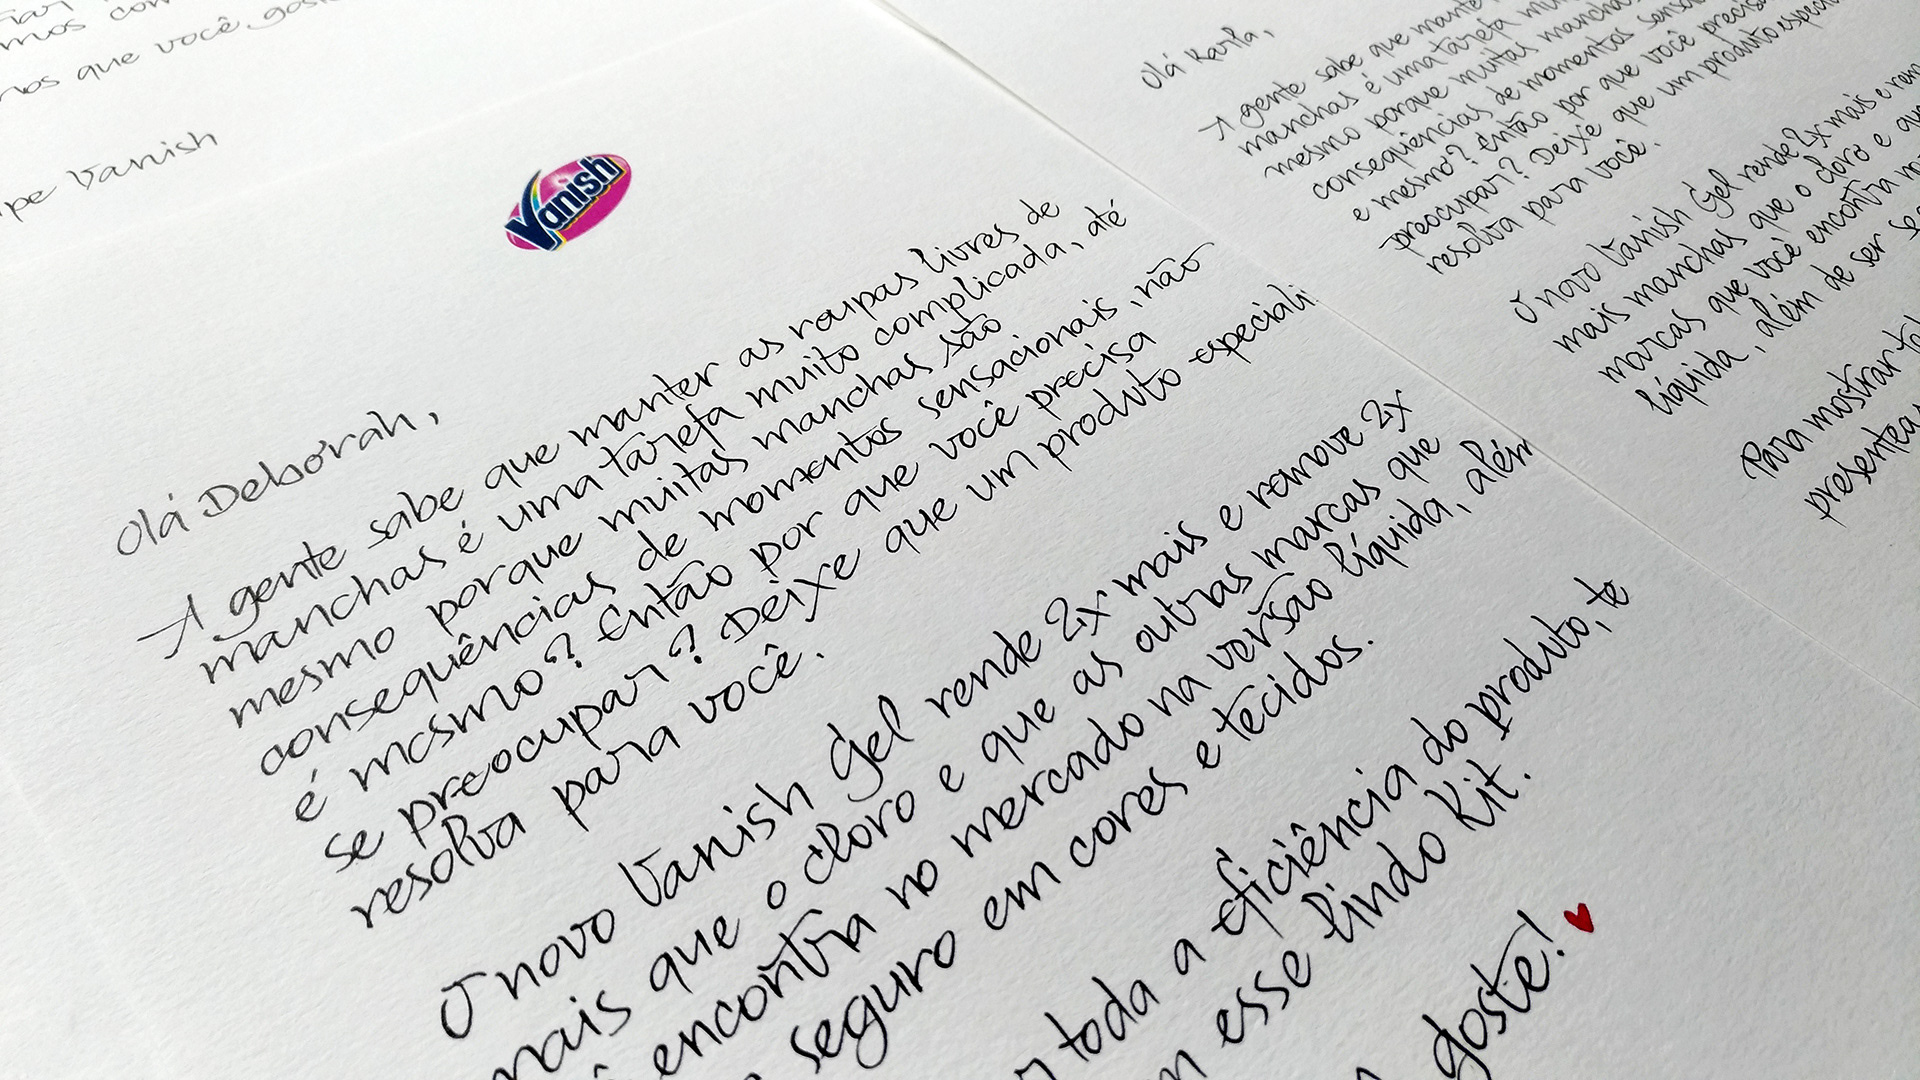 mos com
nos que você gost
pe Vanish
Vanish
Olá Deborah,
A gente sabe que manter as roupas livres de
manchas é uma tarefa muito complicada, até
mesmo porque muitas manchas são
consequências de momentos sensacionais, não
é mesmo? Então por que você precisa
se preocupar? Deixe que um produto especiali
resolva para você.
O novo Vanish Gel rende 2x mais e remove 2x
mais que o cloro e que as outras marcas que
encontra no mercado na versão líquida, além
seguro em cores e tecidos.
toda a eficiência do produto, te
esse lindo Kit.
goste!
Olá Karla,
A gente sabe que mante
manchas é uma tarefa mui
mesmo porque muitas manchas
consequências de momentos sensa
e mesmo? Então por que você precisa
preocupar? Deixe que um produto especia
resolva para você.
O novo Vanish Gel rende 2x mais e rem
mais manchas que o cloro e que
marcas que você encontra no
líquida, além de ser se
Para mostrar to
presentea